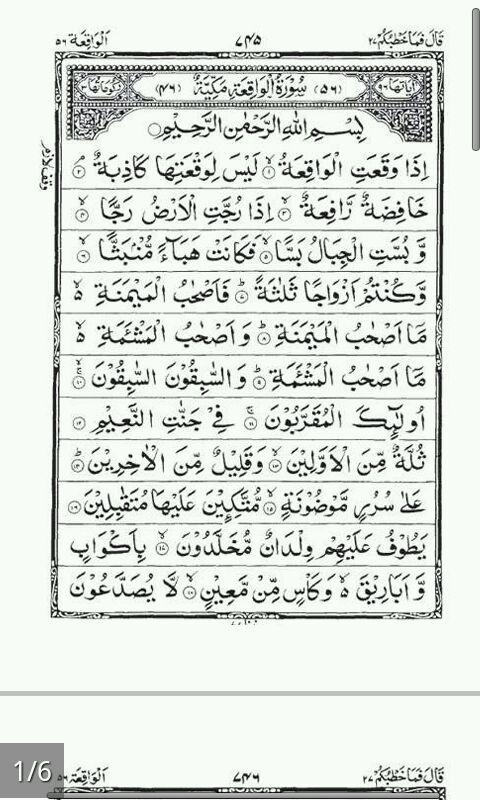 قَالَ فَمَا خَطْبُكُمْ ٢٧
٧٤٥
اَلْوَاقِعَة ٥٦
اٰيَاتُهَا ٩٦
(٥٦) سُوْرَةُ الْوَاقِعَةِ مَكِّيَّةٌ (٤٦)
رُكُوْعَاتُهَا ٣
بِسْمِ اللهِ الرَّحْمٰنِ الرَّحِيْمِ
اِذَا وَقَعَتِ الْوَاقِعَةُ ۙ۝١ لَيْسَ لِوَقْعَتِهَا كَاذِبَةٌ ۘ۝٢
وقف لازم
خَافِضَةٌ رَّافِعَةٌ ۙ۝٣ اِذَا رُجَّتِ الْاَرْضُ رَجًّا ۙ۝٤
وَّ بُسَّتِ الْجِبَالُ بَسًّا ۙ۝٥ فَكَانَتْ هَبَآءً مُّنْۢبَثًّا ۙ۝٦
وَّكُنْتُمْ اَزْوَاجًا ثَلٰثَةً ؕ۝٧ فَاَصْحٰبُ الْمَيْمَنَةِ ۙ۬
مَاۤ اَصْحٰبُ الْمَيْمَنَةِ ؕ۝٨ وَ اَصْحٰبُ الْمَشْـَٔمَةِ ۙ۬
مَاۤ اَصْحٰبُ الْمَشْـَٔمَةِ ؕ۝٩ وَ السّٰبِقُوْنَ السّٰبِقُوْنَ ۚۙ۝١٠
اُولٰٓئِكَ الْمُقَرَّبُوْنَ ۚ۝١١ فِيْ جَنّٰتِ النَّعِيْمِ ۝١٢
ثُلَّةٌ مِّنَ الْاَوَّلِيْنَ ۙ۝١٣ وَقَلِيْلٌ مِّنَ الْاٰخِرِيْنَ ؕ۝١٤
عَلٰى سُرُرٍ مَّوْضُوْنَةٍ ۙ۝١٥ مُّتَّكِـِٕيْنَ عَلَيْهَا مُتَقٰبِلِيْنَ ۝١٦
يَطُوْفُ عَلَيْهِمْ وِلْدَانٌ مُّخَلَّدُوْنَ ۙ۝١٧ بِاَكْوَابٍ
وَّ اَبَارِيْقَ ۙ۬ وَكَاْسٍ مِّنْ مَّعِيْنٍ ۙ۝١٨ لَّا يُصَدَّعُوْنَ
1/6
قَالَ فَمَا خَطْبُكُمْ ٢٧
٧٤٦
اَلْوَاقِعَة ٥٦